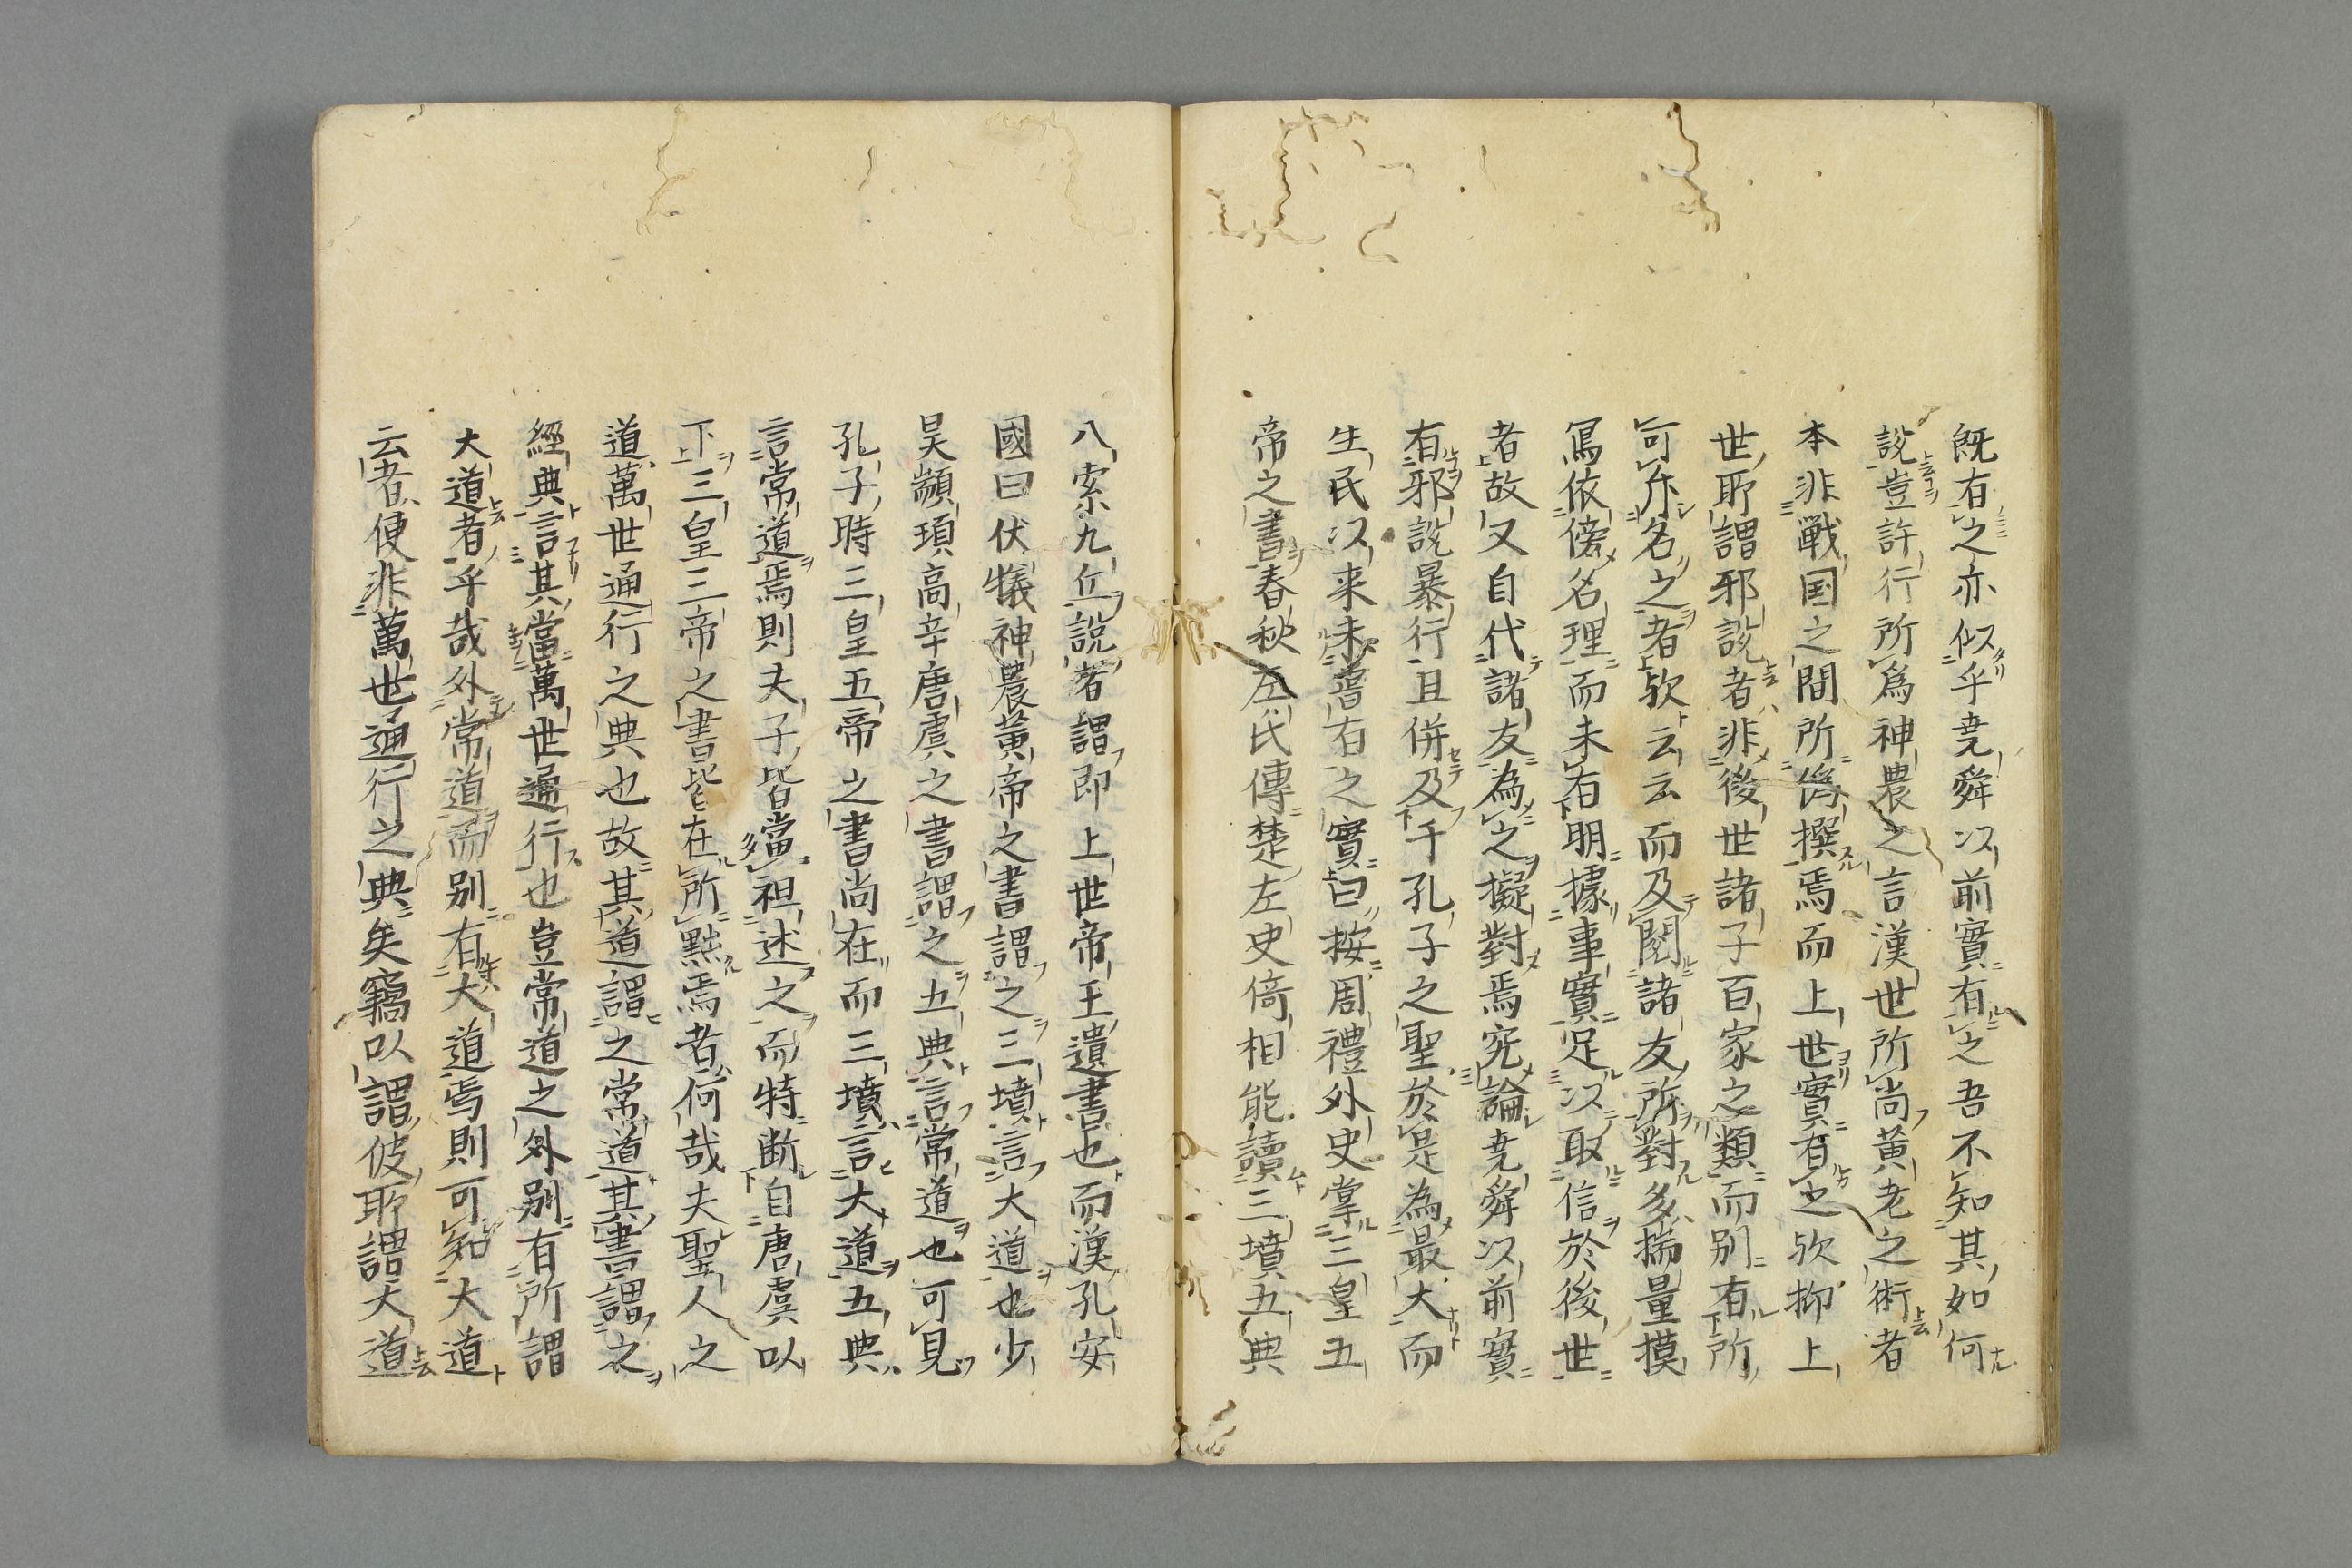 既有之亦似乎尭舜以前實有之吾不知其如何
説豈許行所爲神農之言漢世所尚黄老之術者
本非戰国之間所偽撰焉而上世實有之欤抑上
世所謂邪説者非後世諸子百家之類而别有所
可斥名之者欤云云而及閲諸友所對多揣量摸
冩依傍名理而未有明據事實足以取信於後世
者故又自代諸友為之擬對焉究論尭舜以前實
有邪説暴行且併及于孔子之聖於是為最大而
生民以来未曽有之實曰按周禮外史掌三皇五
帝之書春秋左氏傳楚左史倚相能讀三墳五典
八索九丘説者謂即上世帝王遺書也而漢孔安
國曰伏犠神農黄帝之書謂之三墳言大道也少
昊顓頊高辛唐虞之書謂之五典言常道也可見
孔子時三皇五帝之書尚在而三墳言大道五典
言常道焉則夫子皆當祖述之而特断自唐虞以
下三皇三帝之書皆在所黜焉者何哉夫聖人之
道萬世通行之典也故其道謂之常道其書謂之
經典言其當萬世通行也豈常道之外别有所謂
大道者乎哉外常道而别有大道焉則可知大道
云者便非萬世通行之典矣竊以謂彼所謂大道